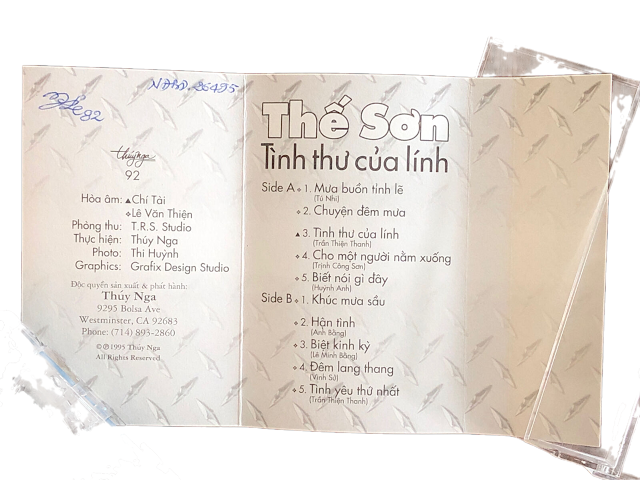 NĐBD. 26425
Thúy Nga
92
Hòa âm: ▲Chí Tài
❖Lê Văn Thiện
Phòng thu: T.R.S. Studio
Thực hiện: Thúy Nga
Photo: Thi Huỳnh
Graphics: Grafix Design Studio
Độc quyền sản xuất & phát hành:
Thúy Nga
9295 Bolsa Ave
Westminster, CA 92683
Phone: (714) 893-2860
©℗1995 Thúy Nga
All Rights Reserved
Thế Sơn
Tình thư của lính
Side A ❖ 1. Mưa buồn tỉnh lẽ
(Tú Nhi)
❖ 2. Chuyện đêm mưa
▲ 3. Tình thư của lính
(Trần Thiện Thanh)
❖ 4. Cho một người nằm xuống
(Trịnh Công Sơn)
❖ 5. Biết nói gì đây
(Huỳnh Anh)
Side B ❖ 1. Khúc mưa sầu
❖ 2. Hận tình
(Anh Bằng)
❖ 3. Biệt kinh kỳ
(Lê Minh Bằng)
❖ 4. Đêm lang thang
(Vinh Sử)
❖ 5. Tình yêu thứ nhất
(Trần Thiện Thanh)